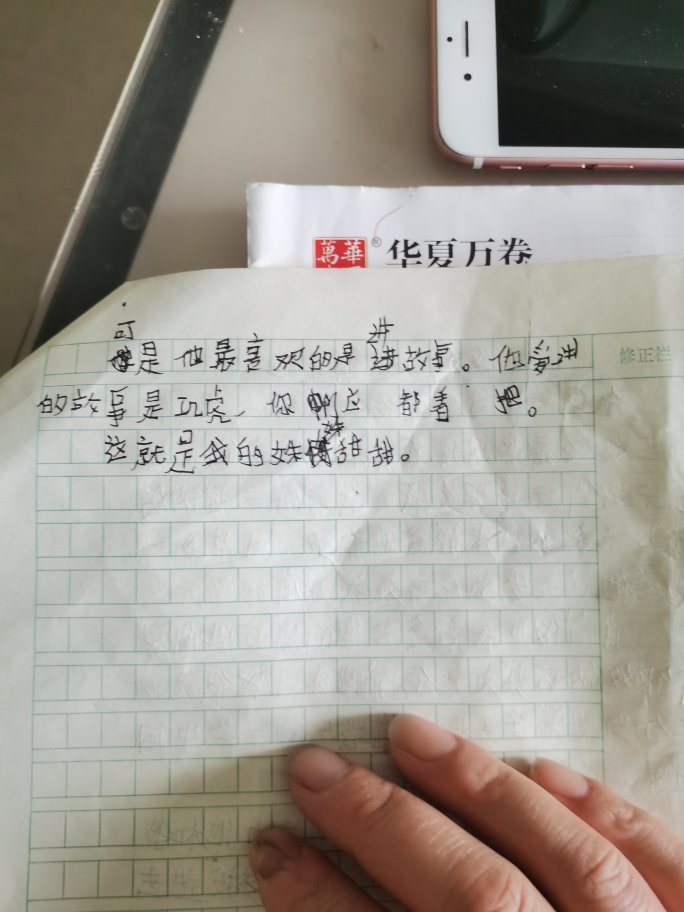 萬華
华夏万卷
可是他最喜欢的是讲故事。他爱讲
修正栏
的故事是巩虎，你 应 都看 。
这就是我的妹妹甜甜。